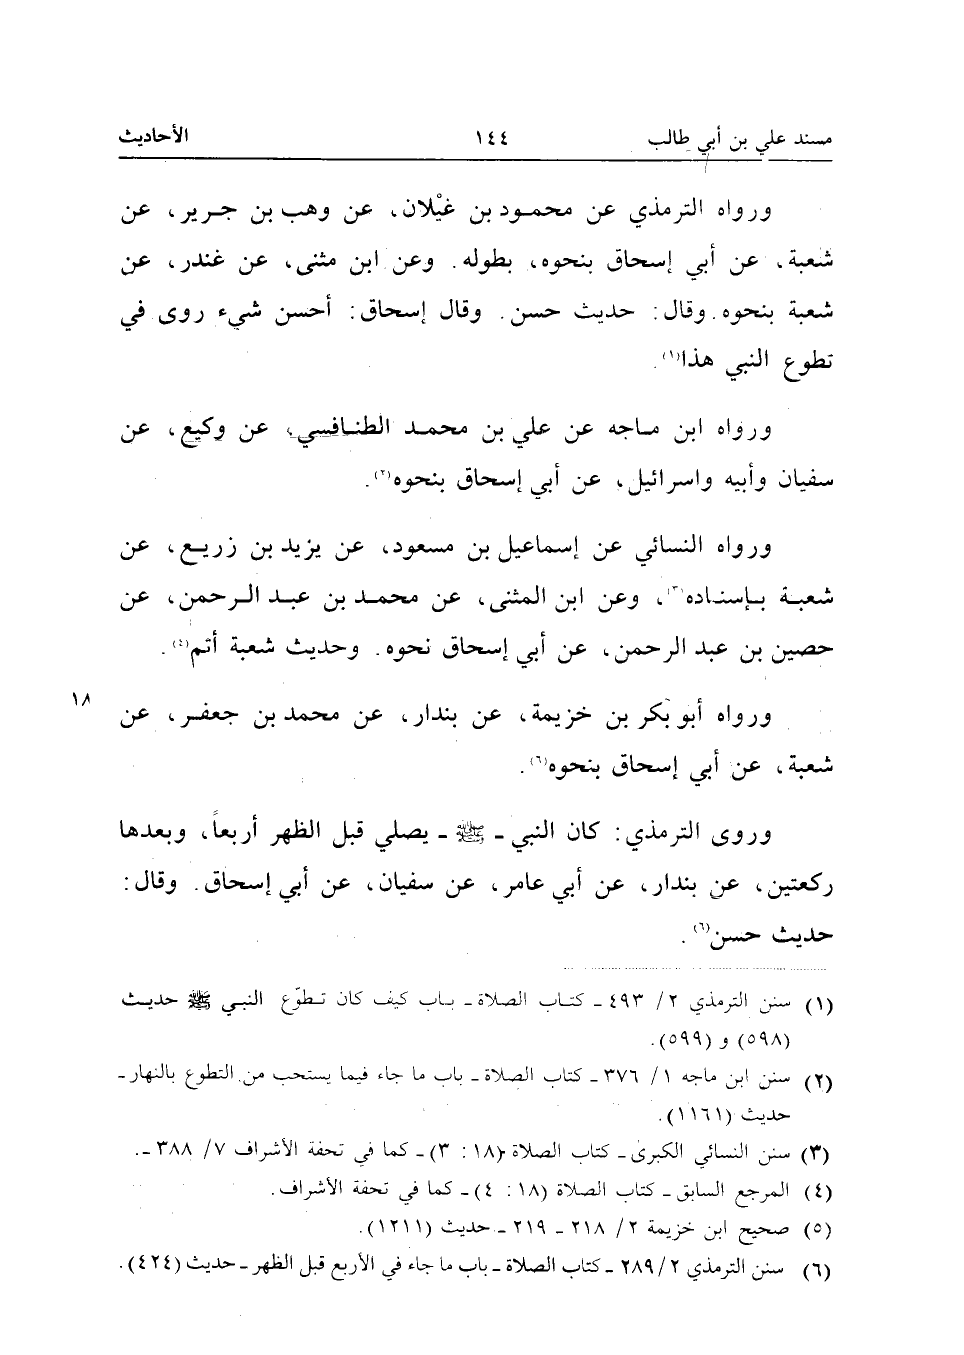 مسند علي بن أبي طالب ١٤٤ الأحاديث
ورواه الترمذي عن محمود بن غيْلان، عن وهب بن جرير، عن
شعبة، عن أبي إسحاق بنحوه، بطوله. وعن ابن مثنى، عن غندر، عن
شعبة بنحوه. وقال: حديث حسن. وقال إسحاق: أحسن شيء روى في
تطوع النبي هذا(١).
ورواه ابن ماجه عن علي بن محمد الطنافسي، عن وكيع، عن
سفيان وأبيه واسرائيل، عن أبي إسحاق بنحوه(٢).
ورواه النسائي عن إسماعيل بن مسعود، عن يزيد بن زريع، عن
شعبة بإسناده(٣)، وعن ابن المثنى، عن محمد بن عبد الرحمن، عن
حصين بن عبد الرحمن، عن أبي إسحاق نحوه. وحديث شعبة أتم(٤).
١٨
ورواه أبو بكر بن خزيمة، عن بندار، عن محمد بن جعفر، عن
شعبة، عن أبي إسحاق بنحوه(٦).
وروى الترمذي: كان النبي ـ ﷺ ـ يصلي قبل الظهر أربعاً، وبعدها
ركعتين، عن بندار، عن أبي عامر، عن سفيان، عن أبي إسحاق. وقال:
حديث حسن(٦).
(١) سنن الترمذي ٢/ ٤٩٣ ـ كتاب الصلاة ـ باب كيف كان تطوّع النبي ﷺ حديث
(٥٩٨) و (٥٩٩).
(٢) سنن ابن ماجه ١/ ٣٧٦ ـ كتاب الصلاة ـ باب ما جاء فيما يستحب من التطوع بالنهار ـ
حديث (١١٦١).
(٣) سنن النسائي الكبرى ـ كتاب الصلاة (١٨: ٣) ـ كما في تحفة الأشراف ٧/ ٣٨٨ ـ.
(٤) المرجع السابق ـ كتاب الصلاة (١٨: ٤) ـ كما في تحفة الأشراف.
(٥) صحيح ابن خزيمة ٢/ ٢١٨ ـ ٢١٩ ـ حديث (١٢١١).
(٦) سنن الترمذي ٢/ ٢٨٩ ـ كتاب الصلاة ـ باب ما جاء في الأربع قبل الظهر ـ حديث (٤٢٤).